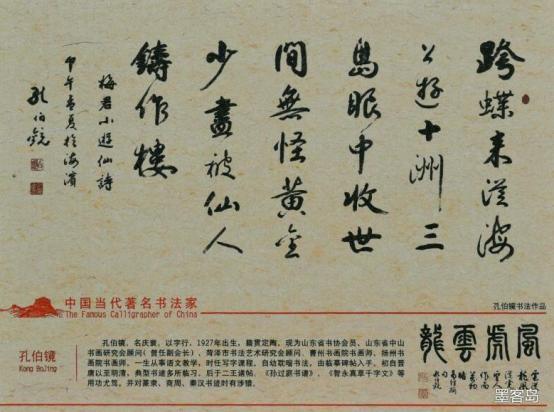 跨蝶来從海
上遊十洲三
島眼中收世
間無怪黄金
少盡被仙人
鑄作樓
梅君小遊仙詩
甲午孟夏於海濱
孔伯鏡
中国当代著名书法家
The Famous Calligrapher of China
孔伯镜书法作品
孔伯镜
Kong BoJing
孔伯镜，名庆寰，以字行，1927年出生，籍贯定陶，现为山东省书协会员、山东省中山
书画研究会顾问（曾任副会长）、菏泽市书法艺术研究会顾问、曹州书画院书画师、扬州书
画院书画师。一生从事语文教学，时任写字课程，自幼耽嗜书法，由临摹碑帖入手，初自晋
唐以至明清，典型书道多所临习，后于二王诸帖、《孙过庭书谱》、《智永真草千字文》等
用功尤笃，并对篆隶、商周、秦汉书迹时有涉猎。
風虎雲龍
墨客岛